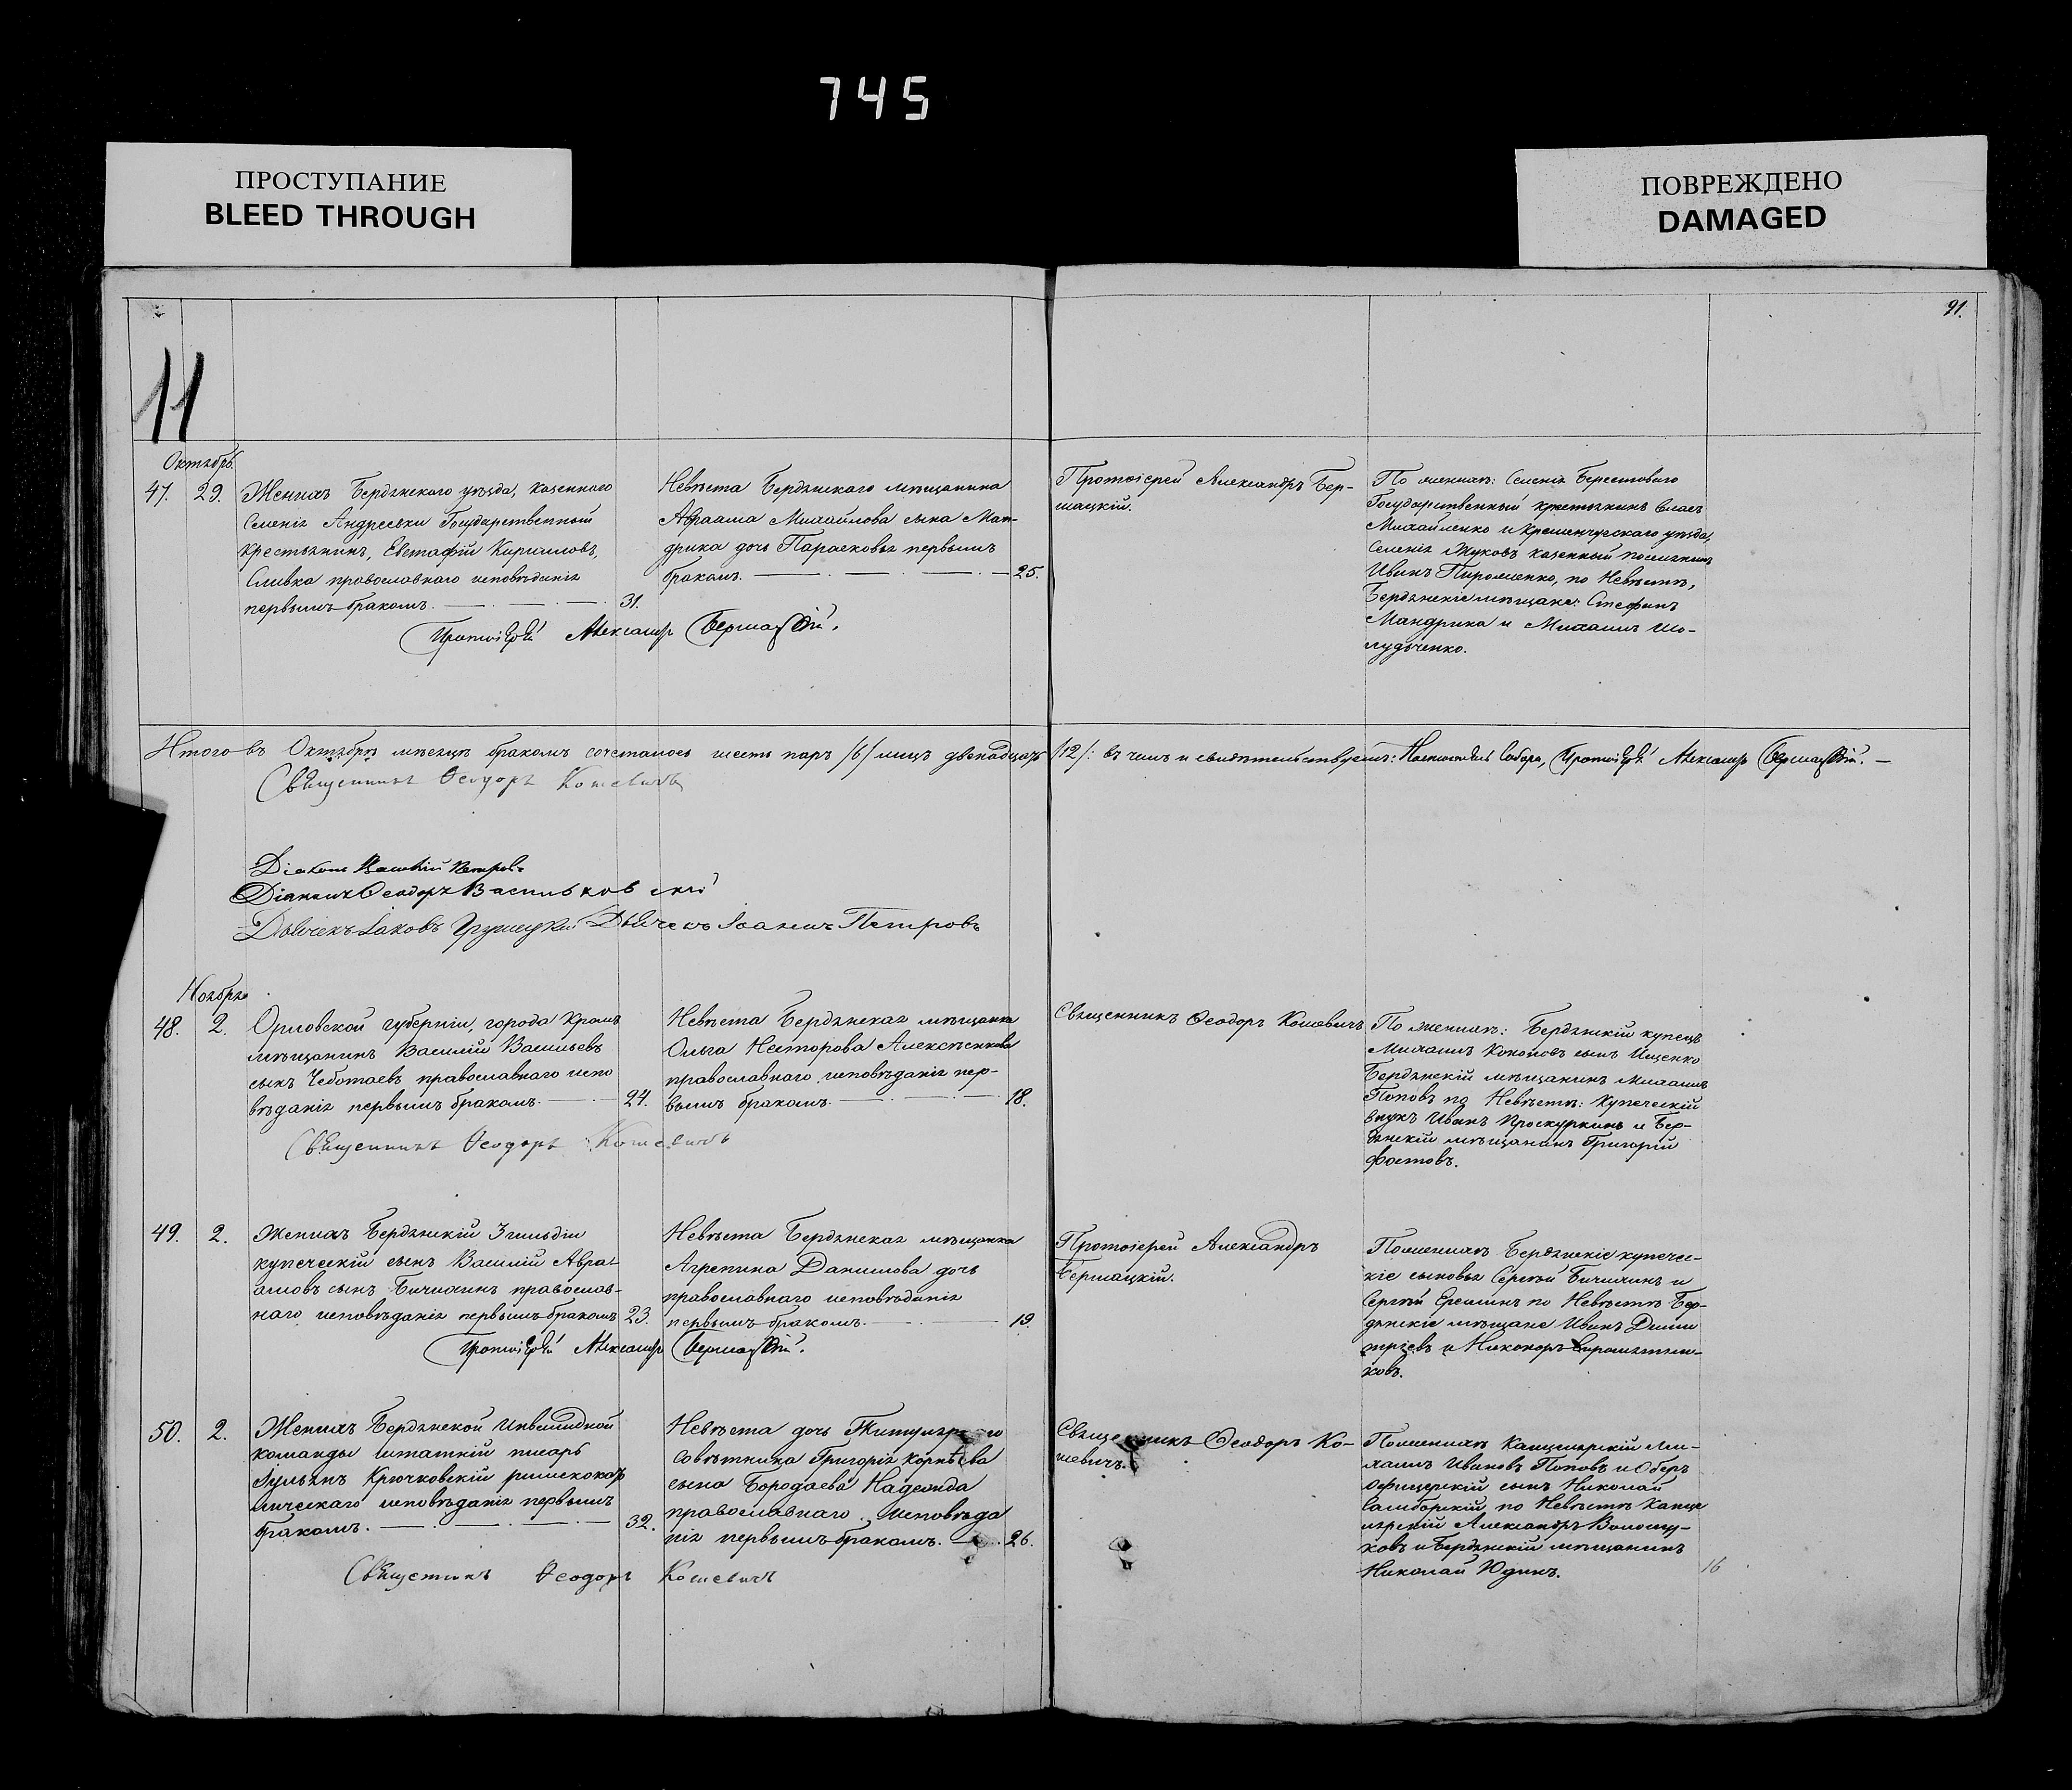 745
ПРОСТУПАНИЕ
BLEED THROUGH
ПОВРЕЖДЕНО
DAMAGED
91.
11
Октябрь.
47. 29.
Женихъ Бердянскаго уѣзда, казеннаго
Селенія Андреевки Государственный
крестьянинъ, Евстафій Кирилловъ,
Сливка православнаго исповѣданія
первымъ бракомъ. 31.
Невѣста Бердянскаго мѣщанина
Авраама Михайлова сына Ман-
дрика дочь Парасковья первымъ
бракомъ. 25.
Протоіерей Александръ Бер-
мацкій.
По женихѣ: Селенія Берестоваго
Государственный крестьянинъ Власъ
Михайленко и Кременчугскаго уѣзда,
Селенія Жуковъ казенный поселянинъ
Иванъ Пироженко, по Невѣстѣ,
Бердянскіе мѣщане: Стефанъ
Мандрика и Михаилъ Шо-
лудьченко.
Протоіерей Александръ Бермацкій.
Итого въ Октябрѣ мѣсяцѣ бракомъ сочеталось шесть паръ /6/ лицъ двенадцать /12/: въ чемъ и свидѣтельствуемъ: Настоятель Собора, Протоіерей Александръ Бермацкій.
Священникъ Ѳеодоръ Кошевичъ
Діаконъ Василій Петровъ
Діаконъ Ѳеодоръ Васильковскій
Дьячекъ Іаковъ Грушецкій Дьячекъ Іоаннъ Петровъ
Ноябрь
48. 2.
Орловской губерніи, города Кромъ
мѣщанинъ Василій Васильевъ
сынъ Чеботаевъ православнаго испо
вѣданія первымъ бракомъ. 24.
Невѣста Бердянская мѣщанка
Ольга Несторова Алексѣенкова
православнаго исповѣданія пер-
вымъ бракомъ. 18.
Священникъ Ѳеодоръ Кошевичъ
По женихѣ: Бердянскій купецъ
Михаилъ Кононовъ сынъ Ищенко
Бердянскій мѣщанинъ Михаилъ
Поповъ по Невѣстѣ: Купеческій
внукъ Иванъ Проскурнинъ и Бер-
дянскій мѣщанинъ Григорій
Фостовъ.
Священникъ Ѳеодоръ Кошевичъ
49. 2.
Женихъ Бердянскій 3 гильдіи
купеческій сынъ Василій Авра-
амовъ сынъ Бичихинъ православ-
наго исповѣданія первымъ бракомъ 23.
Невѣста Бердянская мѣщанка
Агрепина Данилова дочь
православнаго исповѣданія
первымъ бракомъ. 19.
Протоіерей Александръ
Бермацкій.
По женихѣ Бердянскіе купечес-
кіе сыновья Сергѣй Бичихинъ и
Сергѣй Ереминъ по Невѣстѣ Бер-
дянскіе мѣщане Иванъ Дими
тріевъ и Никоноръ
ковъ.
Протоіерей Александръ Бермацкій.
50. 2.
Женихъ Бердянской Инвалидной
команды штатный писарь
Іульянъ Крючковскій римскокаѳ
лическаго исповѣданія первымъ
бракомъ. 32.
Невѣста дочь Титулярнаго
Совѣтника Григорія Корнѣева
сына Бородаева Надежда
православнаго исповѣда
нія первымъ бракомъ. 26.
Священникъ Ѳеодоръ Ко-
шевичъ.
По женихѣ Канцелярскій Ми-
хаилъ Ивановъ Поповъ и Оберъ
Офицерскій сынъ Николай
Самборскій по Невѣстѣ Канце
лярскій Александръ Волощу-
ковъ и Бердянскій мѣщанинъ
Николай Юдинъ.
16
Священникъ Ѳеодоръ Кошевичъ